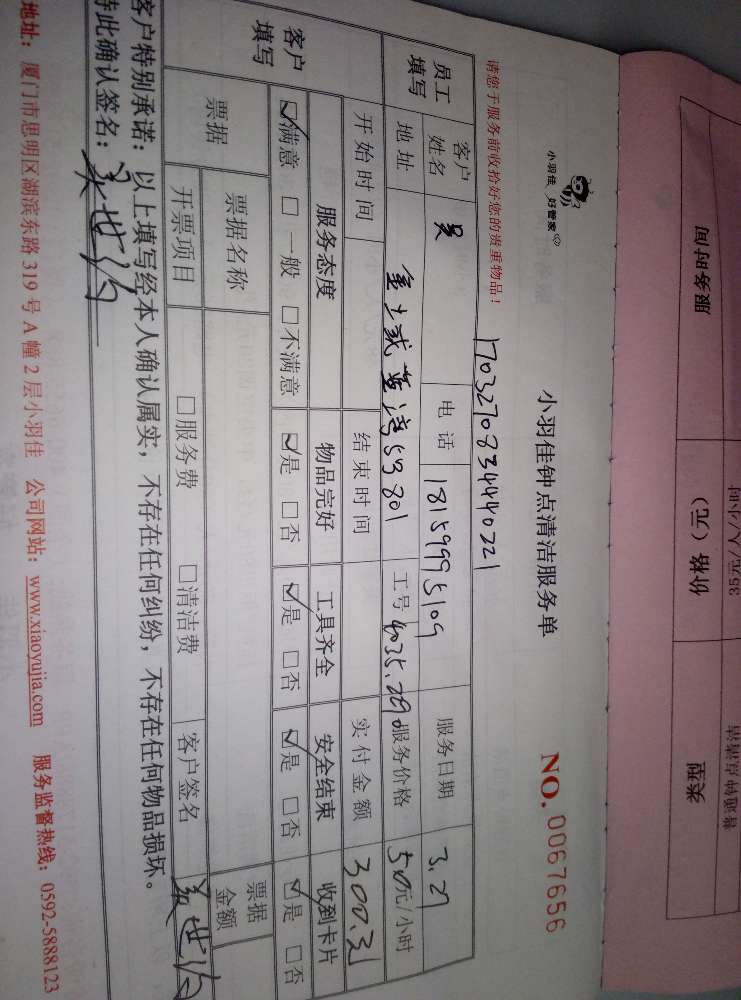 小羽佳 好管家
小羽佳钟点清洁服务单
NO. 0067656
请您于服务前收拾好您的贵重物品!
17032708344440221
员工填写
客户姓名 吴 电话 18159995109 服务日期 3.27
地址 801 工号 服务价格 50元/小时
开始时间 结束时间 实付金额 300元
客户填写
服务态度 物品完好 工具齐全 安全结束 收到卡片
☑满意 □一般 □不满意 ☑是 □否 ☑是 □否 ☑是 □否 ☑是 □否
票据 票据名称 票据金额
开票项目 □服务费 □清洁费 客户签名
客户特别承诺:以上填写经本人确认属实,不存在任何纠纷,不存在任何物品损坏。
特此确认签名:
地址:厦门市思明区湖滨东路319号A幢2层小羽佳 公司网站:www.xiaoyujia.com 服务监督热线:0592-5888123
类型 价格(元) 服务时间
普通钟点清洁 35元/人/小时